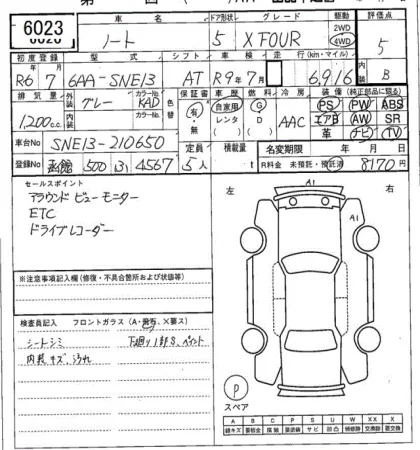 6023
車名 ドア形状 グレード 駆動 評価点
ノート 5 X FOUR 2WD 4WD 5
初度登録 型式 シフト 車検 走行(km・マイル) 内装
R6 7 6AA-SNE13 AT R9年7月 6,916 B
排気量 外装 カラーNo. 色替 保証書 車歴 燃料 冷房 装備(純正部品に限る)
1,200cc グレー KAD 有・無 自家用 レンタ G D AAC PS PW ABS
内装 カラーNo. エアB AW SR
革 ナビ TV
車台No SNE13-210650
定員 積載量 名変期限 年 月 日
登録No 函館 500 (す) 4567 5人 t R料金 未預託・預託済 8170円
セールスポイント
アラウンドビューモニター
ETC
ドライブレコーダー
左 右
A1
A1
※注意事項記入欄(修復・不具合箇所および状態等)
検査員記入 フロントガラス(A・飛石、X要ス)
シートシミ 下廻り1部S、ペイント
内装キズ、汚れ
P
スペア
A B C P S U W X XX
線キズ 要板金 腐蝕 要塗装 サビ 凹凸 補修跡 交換跡 要交換